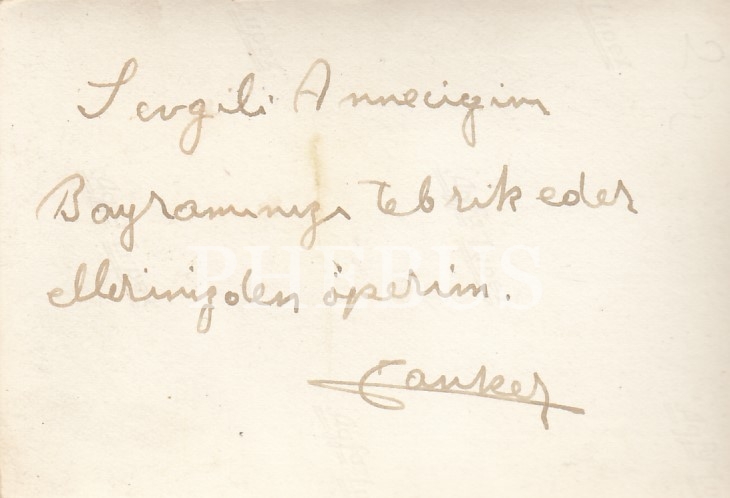 Sevgili Anneciğim
Bayramınızı tebrik eder
ellerinizden öperim.
PHEBUS